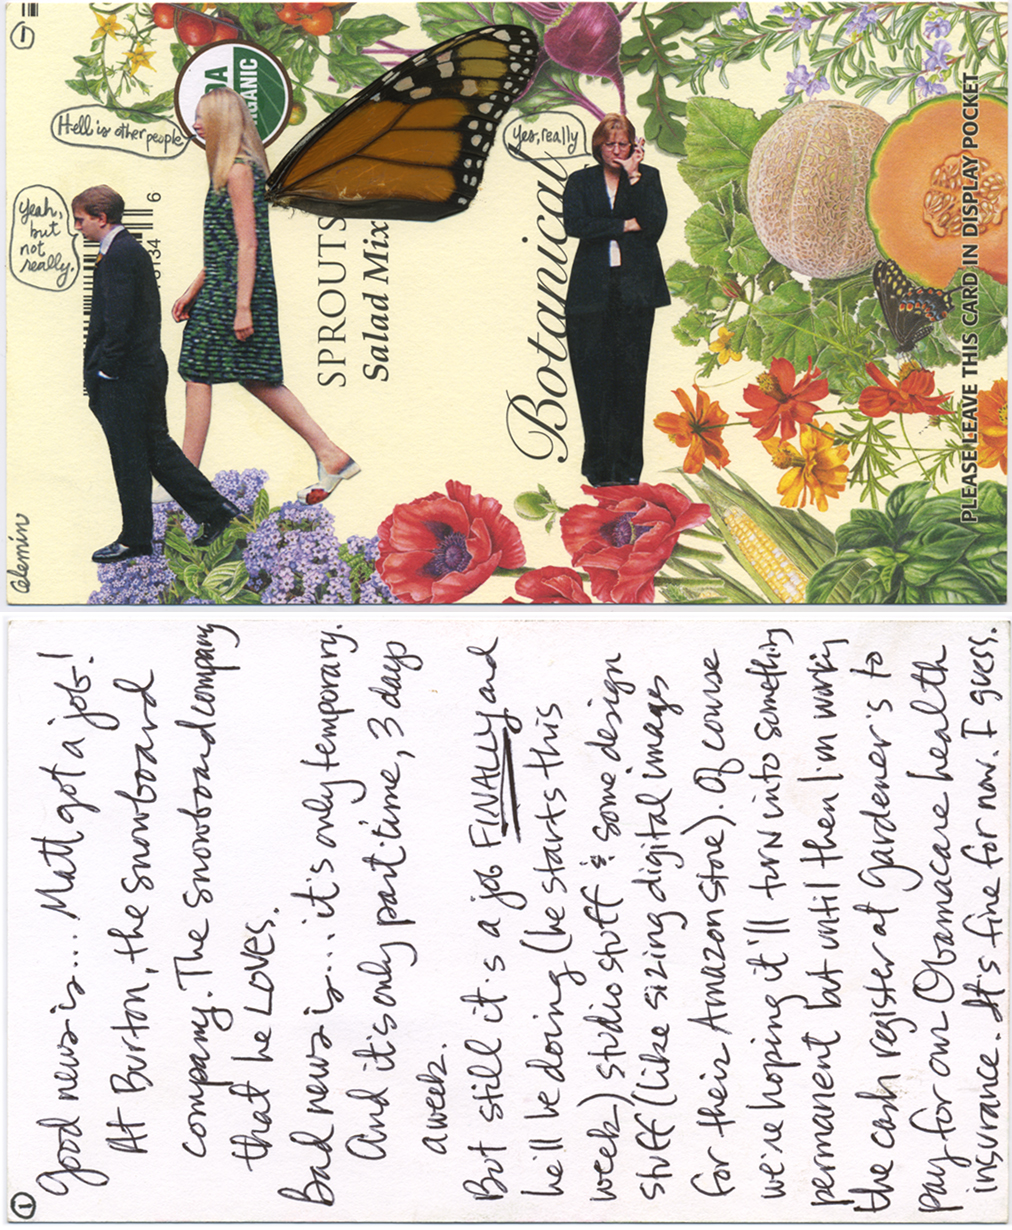 1
USDA
ORGANIC
Hell is other people
Yes, really
Yeah,
but
not
really.
6
SPROUTS
Salad Mix
Botanical
PLEASE LEAVE THIS CARD IN DISPLAY POCKET
1
Good news is... Matt got a job!
At Burton, the snowboard
company. The snowboard company
that he LOVES.
Bad news is... it's only temporary.
And it's only part time, 3 days
a week.
But still it's a job FINALLY and
he'll be doing (he starts this
week) studio stuff & some design
stuff (like sizing digital images
for their Amazon store). Of course
we're hoping it'll turn into something
permanent but until then I'm working
the cash register at Gardener's to
pay for our Obamacare health
insurance. It's fine for now. I guess.